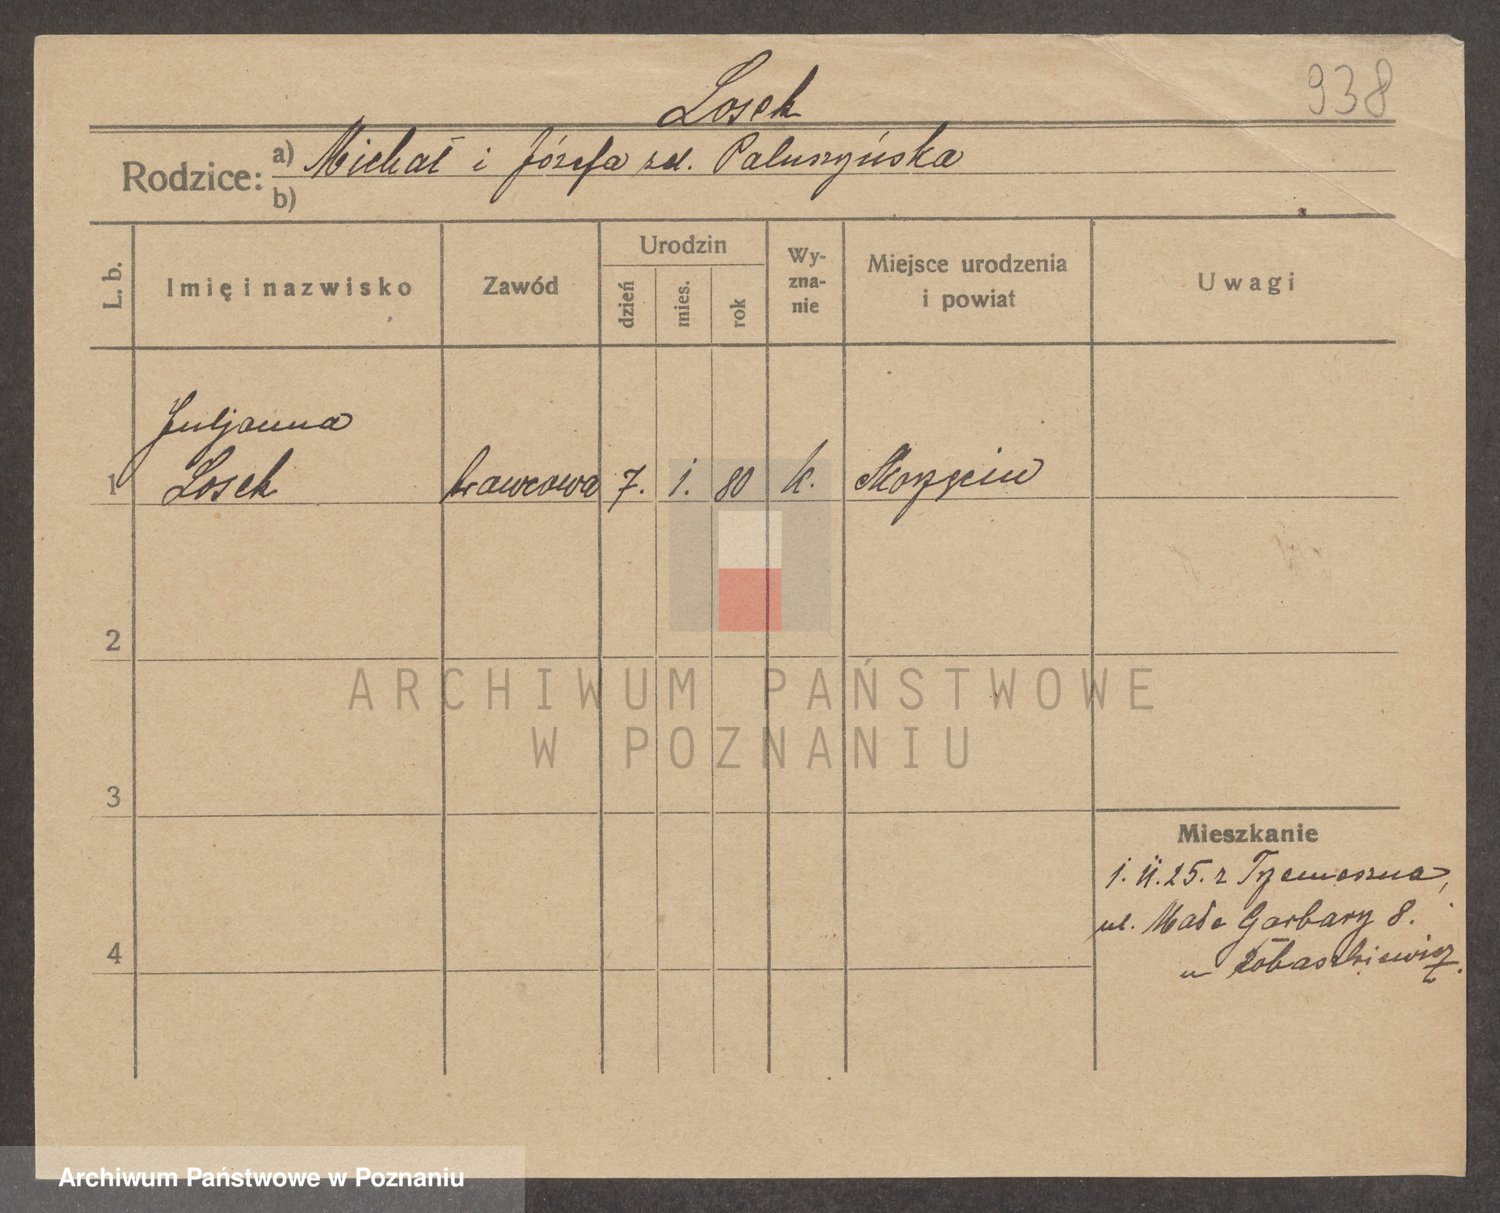 938
Losek
Rodzice: a) Michał i Józefa zd. Paluszyńska
b)
L. b.
Imię i nazwisko
Zawód
Urodzin
dzień
mies.
rok
Wy-
zna-
nie
Miejsce urodzenia
i powiat
Uwagi
Juljanna
1 Losek krawcowa 7. 1. 80 k.
2
3
4
Mieszkanie
1. II. 25. z Trzemeszna,
ul. Małe Garbary 8.
ARCHIWUM PAŃSTWOWE
W POZNANIU
Archiwum Państwowe w Poznaniu